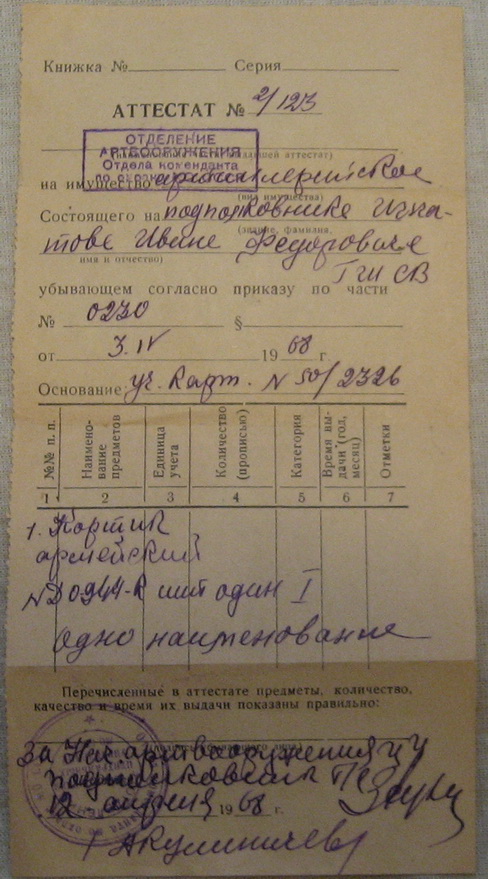 Книжка № Серия
АТТЕСТАТ № 2/123
ОТДЕЛЕНИЕ
АРТВООРУЖЕНИЯ
Отдела коменданта
по охране
на имущество артиллерийское
(вид имущества)
Состоящего на подполковнике Игна-
(звание, фамилия,
тове Иване Федоровиче
имя и отчество)
ГШ СВ
убывающем согласно приказу по части
№ 0230 §
от 3.IV 1968 г
Основание уч. карт. N 50/2326
№№ п. п. Наимено-вание предметов Единица учета Количество (прописью) Категория Время вы-дачи (год, месяц) Отметки
1 2 3 4 5 6 7
1. Кортик
армейский
шт один I
Одно наименование
Перечисленные в аттестате предметы, количество,
качество и время их выдачи показаны правильно:
За Нач. артвооружения
подполковник
12 апреля 1968 г.
/Акулиничев/